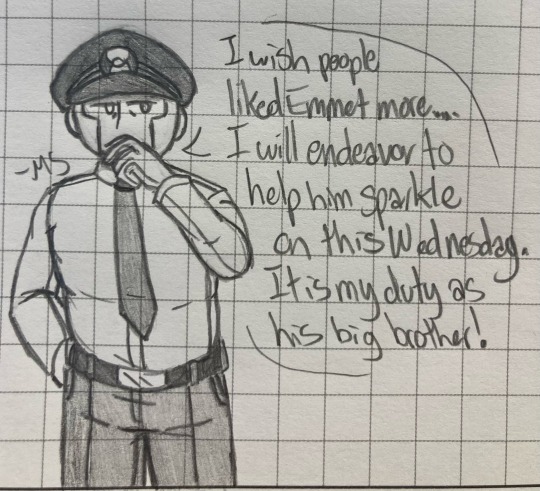 I wish people
liked Emmet more....
I will endeavor to
help him sparkle
on this Wednesday.
It is my duty as
his big brother!
-MS